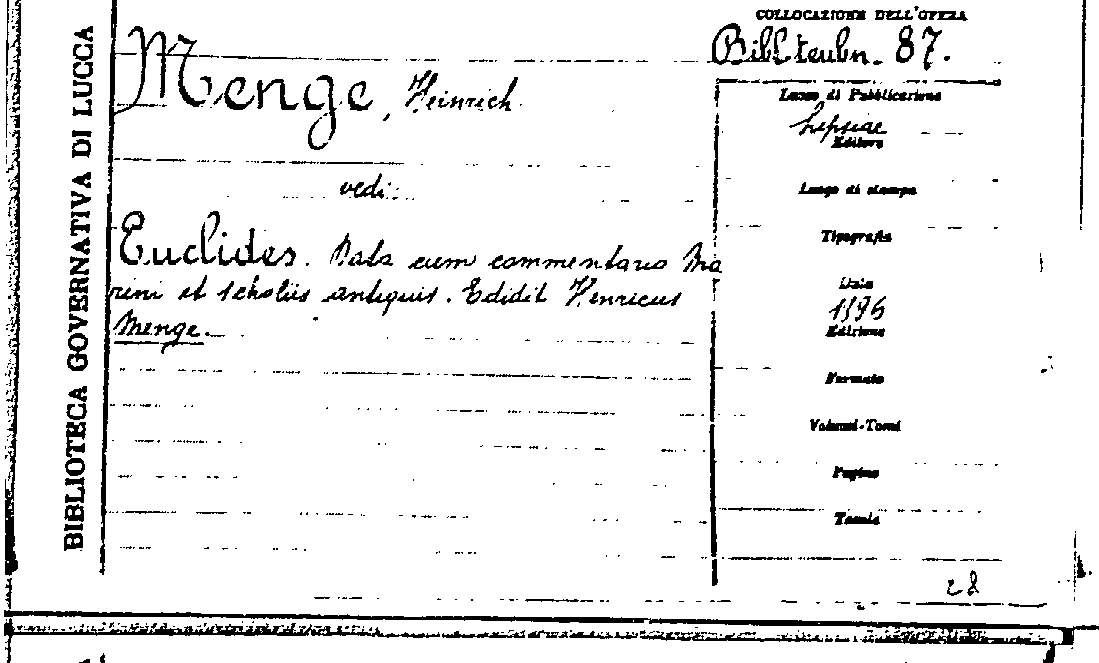 BIBLIOTECA GOVERNATIVA DI LUCCA
COLLOCAZIONE DELL'OPERA
Bibl. teubn. 87.
Menge, Heinrich
Luogo di Pubblicazione
Lipsiae
Editore
vedi:
Luogo di stampa
Tipografia
Euclides. Data cum commentario Ma
rini et scholiis antiquis. Edidit Henricus
Menge.
Data
1896
Edizione
Formato
Volumi-Tomi
Pagine
Tavole
28